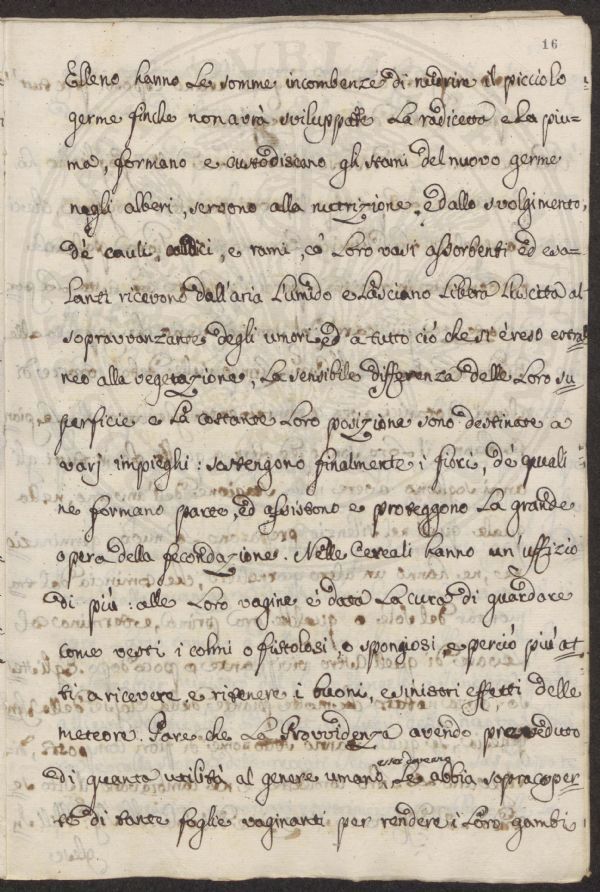 16
Elleno hanno le somme incombenze di nudrire il picciolo
germe finche non avrà sviluppate la radicetta e la piu=
ma, formano e custodiscano gli stami del nuovo germe
negli alberi, servono alla nutrizione, ed allo svolgimento,
de' cauli, caudici, e rami, co' loro vasi assorbenti ed esa=
lanti ricevono dall'aria l'umido e lasciano libbera l'uscitta al
sopravvanzante degli umori ed a tutto ciò che si è reso estra
neo alla vegetazione, la sensibile differenza delle loro su
perficie e la costante loro posizione sono destinate a
varj impieghi: sostengono finalmente i fiori, de' quali
ne formano parte, ed assistono e proteggono la grande
opera della fecondazione. Nelle Cereali hanno un'uffizio
di più: alle loro vagine è data la cura di guardare
come vesti i colmi o fistolosi, o spongiosi, e perciò più at
ti a ricevere e ritenere i buoni, e sinistri effetti delle
meteore. Pare che la Provvidenza avendo preveduto
di quanta utilità al genere umano esser doveano le abbia sopracoper
te di tante foglie vaginanti per rendere i loro gambi